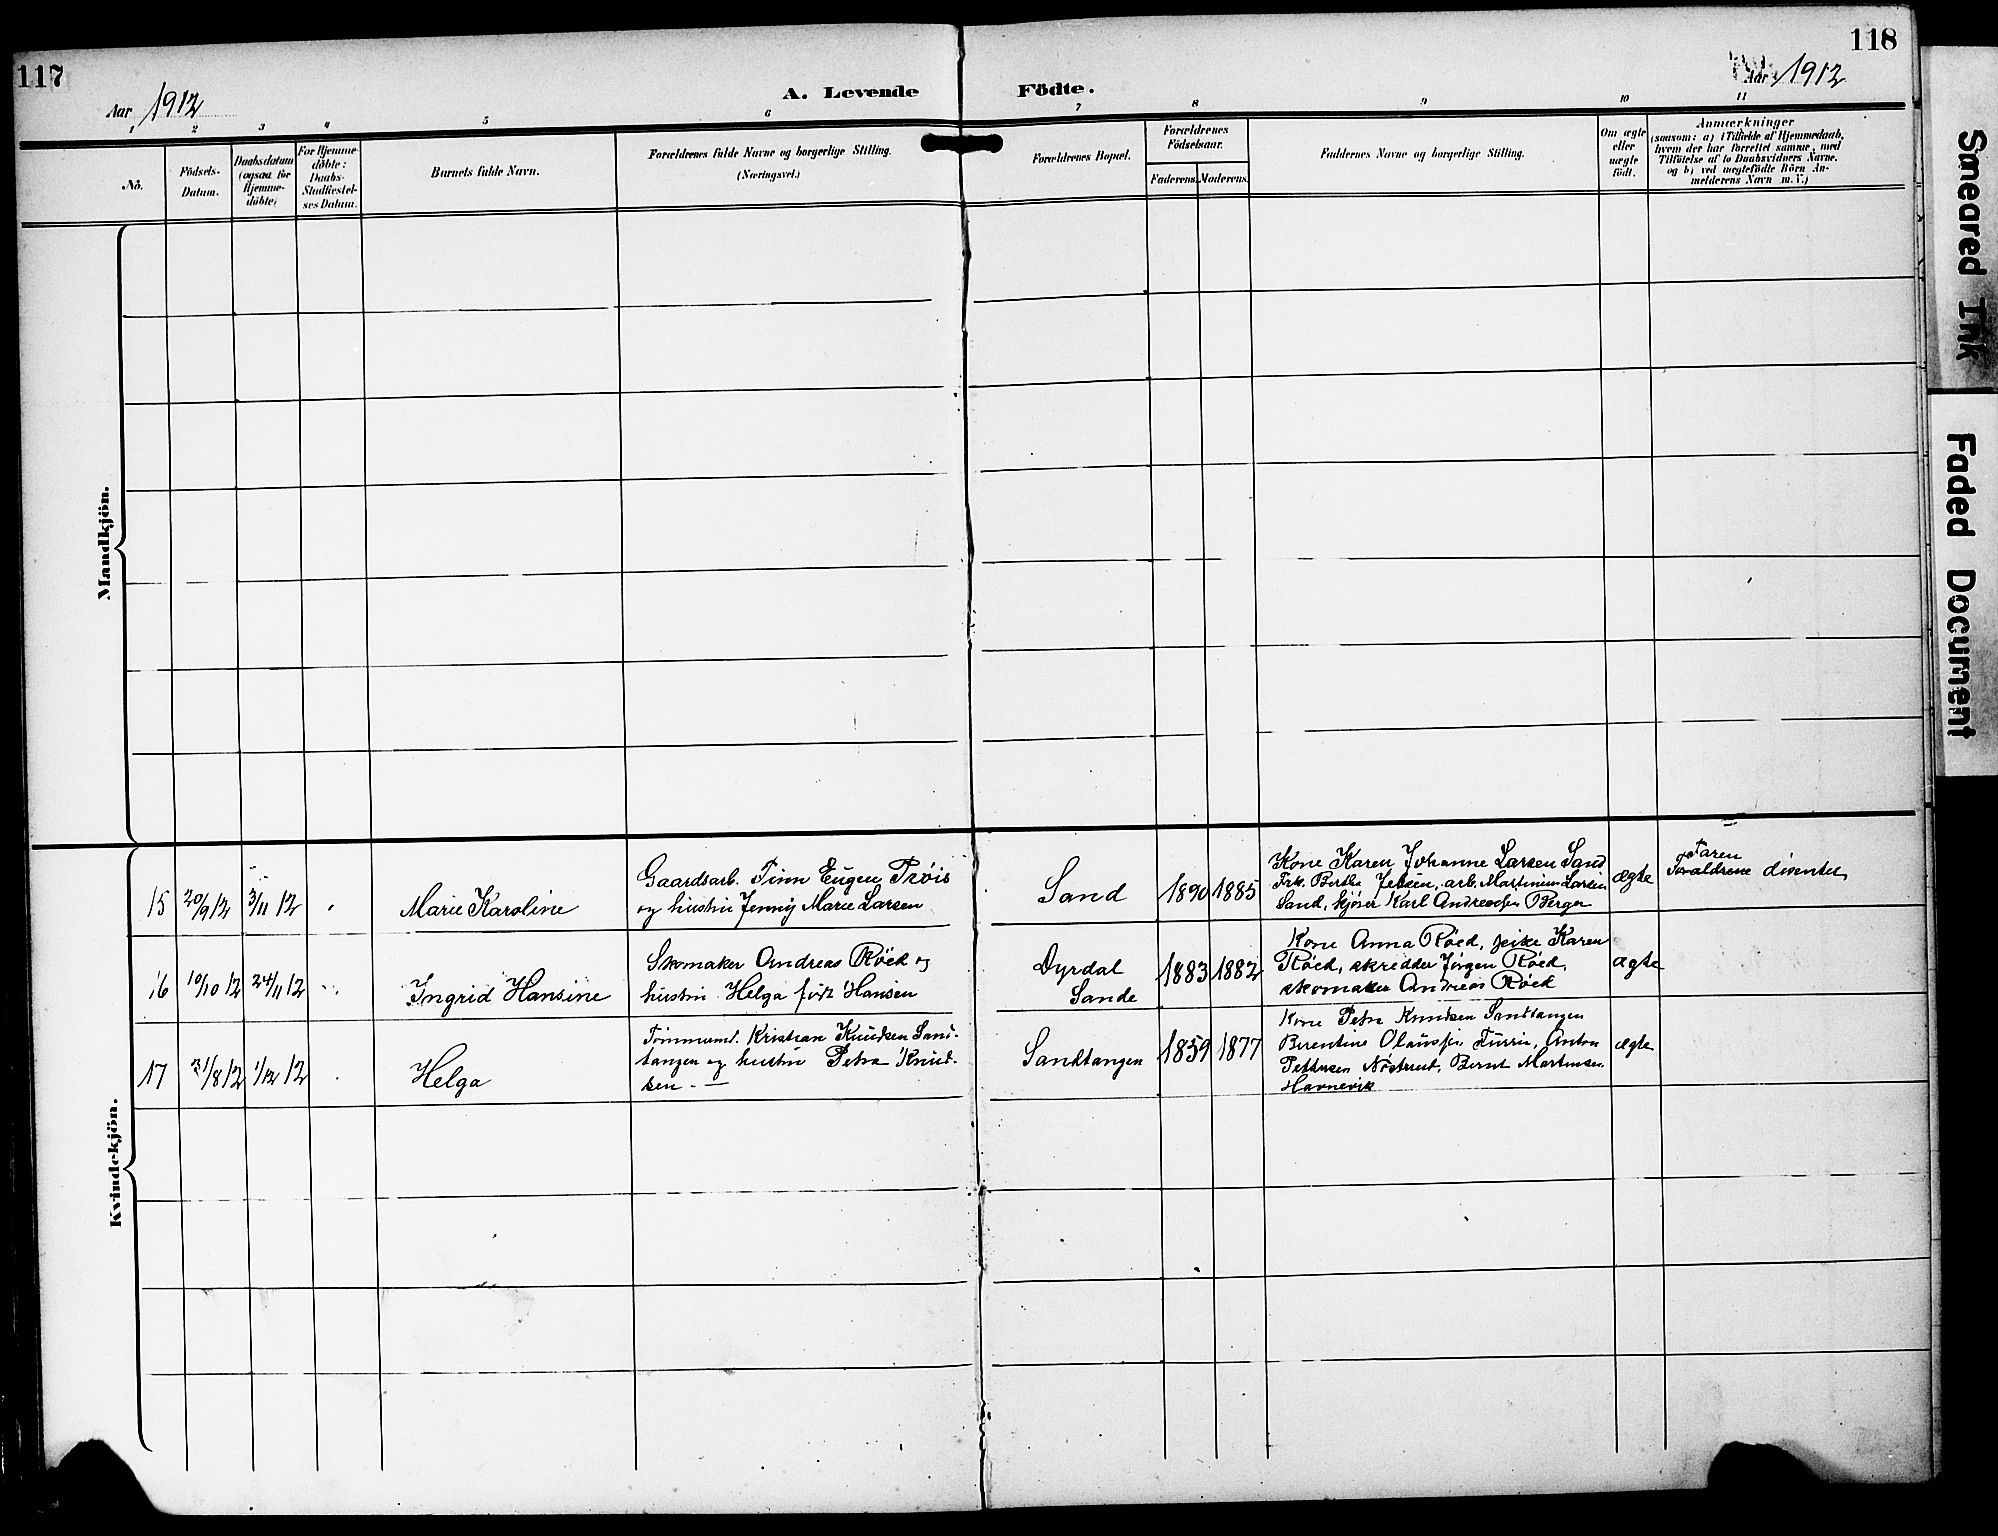 117
118
Aar 1912
A. Levende
Födte.
Aar 1912
1 2 3 4 5 6 7 8 9 10 11
No.
Födsels-
Datum.
Daabsdatum
(ogsaa for
Hjemme-
döbte)
For Hjemme-
döbte:
Daabs-
Stadfæstel-
ses Datum.
Barnets fulde Navn.
Forældrenes fulde Navne og borgerlige Stilling.
(Næringsvei.)
Forældrenes Bopæl.
Forældrenes
Födselsaar.
Faderens. Moderens.
Faddernes Navne og borgerlige Stilling.
Om ægte
eller
uægte
födt.
Anmærkninger
(saasom: a) i Tilfælde af Hjemmedaab,
hvem der har forrettet samme, med
Tilföielse af to Daabsvidners Navne.
og b) ved uægtefödte Börn An-
melderens Navn m. V.)
Mandkjön.
Kvindekjön.
15
20/9 12
3/11 12
Marie Karoline
Gaardsarb. Finn Eugen Trøis
og hustru Jenny Marie Larsen
Sand
1890
1885
Kone Karen Johanne Larsen Sand
Frk. Bertha Jebsen, arb. Martinius Larsen
Sand, kjører Karl Andreassen Berger
ægte
Faren
Forældrene disenter
16
10/10 12
24/11 12
Ingrid Hansine
Skomaker Andreas Røed og
hustru Helga født Hansen
Dyrdal
Sande
1883
1882
Kone Anna Røed, peike Karen
Røed, skredder Jørgen Røed,
skomaker Andreas Røed
ægte
17
21/8 12
1/12 12
Helga
Tømmermd. Kristian Knudsen Sand-
tangen og hustru Petra Knud-
sen
Sandtangen
1859
1877
Kone Petra Knudsen Sandtangen
Berentine Anton
Pettersen Nøstrud, Bernt Martinsen
Havnevik
ægte
Smeared Ink
Faded Document